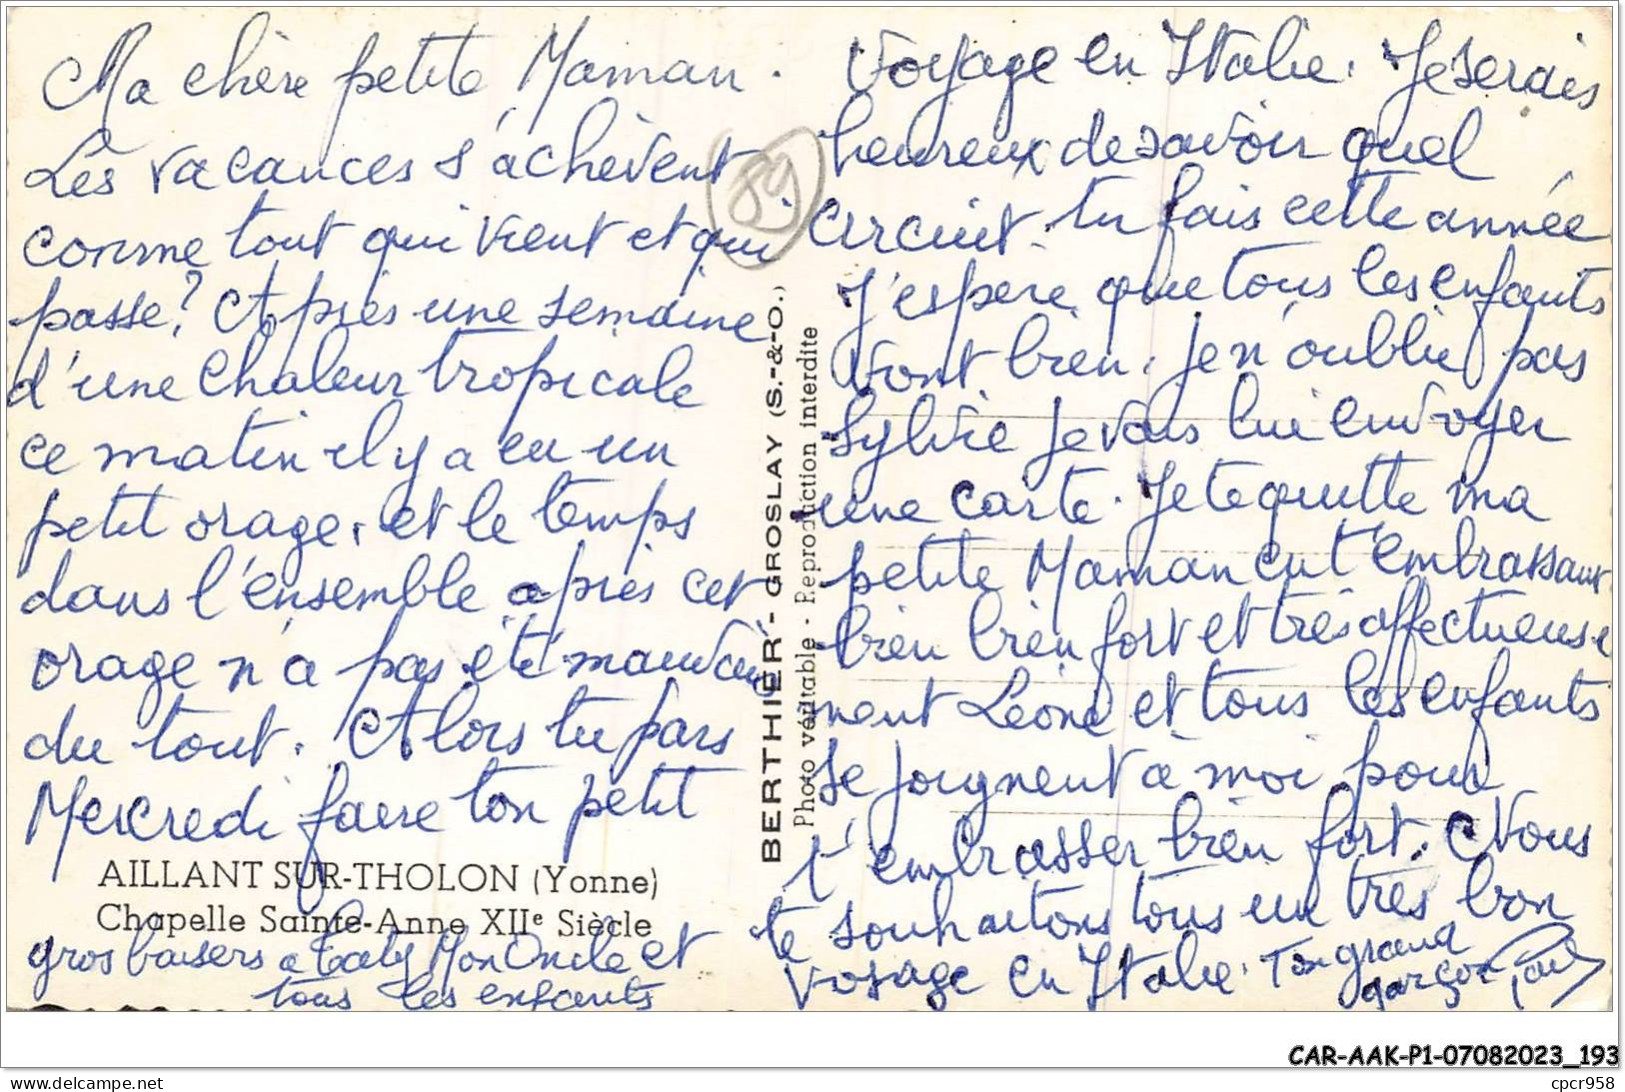 Ma chère petite Maman.
Les vacances s'achèvent
comme tout qui vient et qui
passe? Après une semaine
d'une chaleur tropicale
ce matin il y a eu un
petit orage, et le temps
dans l'ensemble après cet
orage n'a pas été mauvais
du tout. Alors tu pars
Mercredi faire ton petit
AILLANT SUR-THOLON (Yonne)
Chapelle Sainte-Anne XIIe Siècle
gros baisers a Taty Mon Oncle et
tous les enfants
89
BERTHIER - GROSLAY (S.-&-O.)
Photo véritable - Reproduction interdite
voyage en Italie. Je serais
heureux de savoir quel
circuit tu fais cette année
J'espère que tous les enfants
vont bien. Je n'oublie pas
Sylvie je vais lui envoyer
une carte. Je te quitte ma
petite Maman en t'embrassant
bien bien fort et très affectueuse
ment Léone et tous les enfants
se joignent à moi pour
t'embrasser bien fort. Nous
te souhaitons tous un très bon
voyage en Italie. Ton grand
garçon Paul
CAR-AAK-P1-07082023_193
Copyright (c) delcampe.net
cpcr958